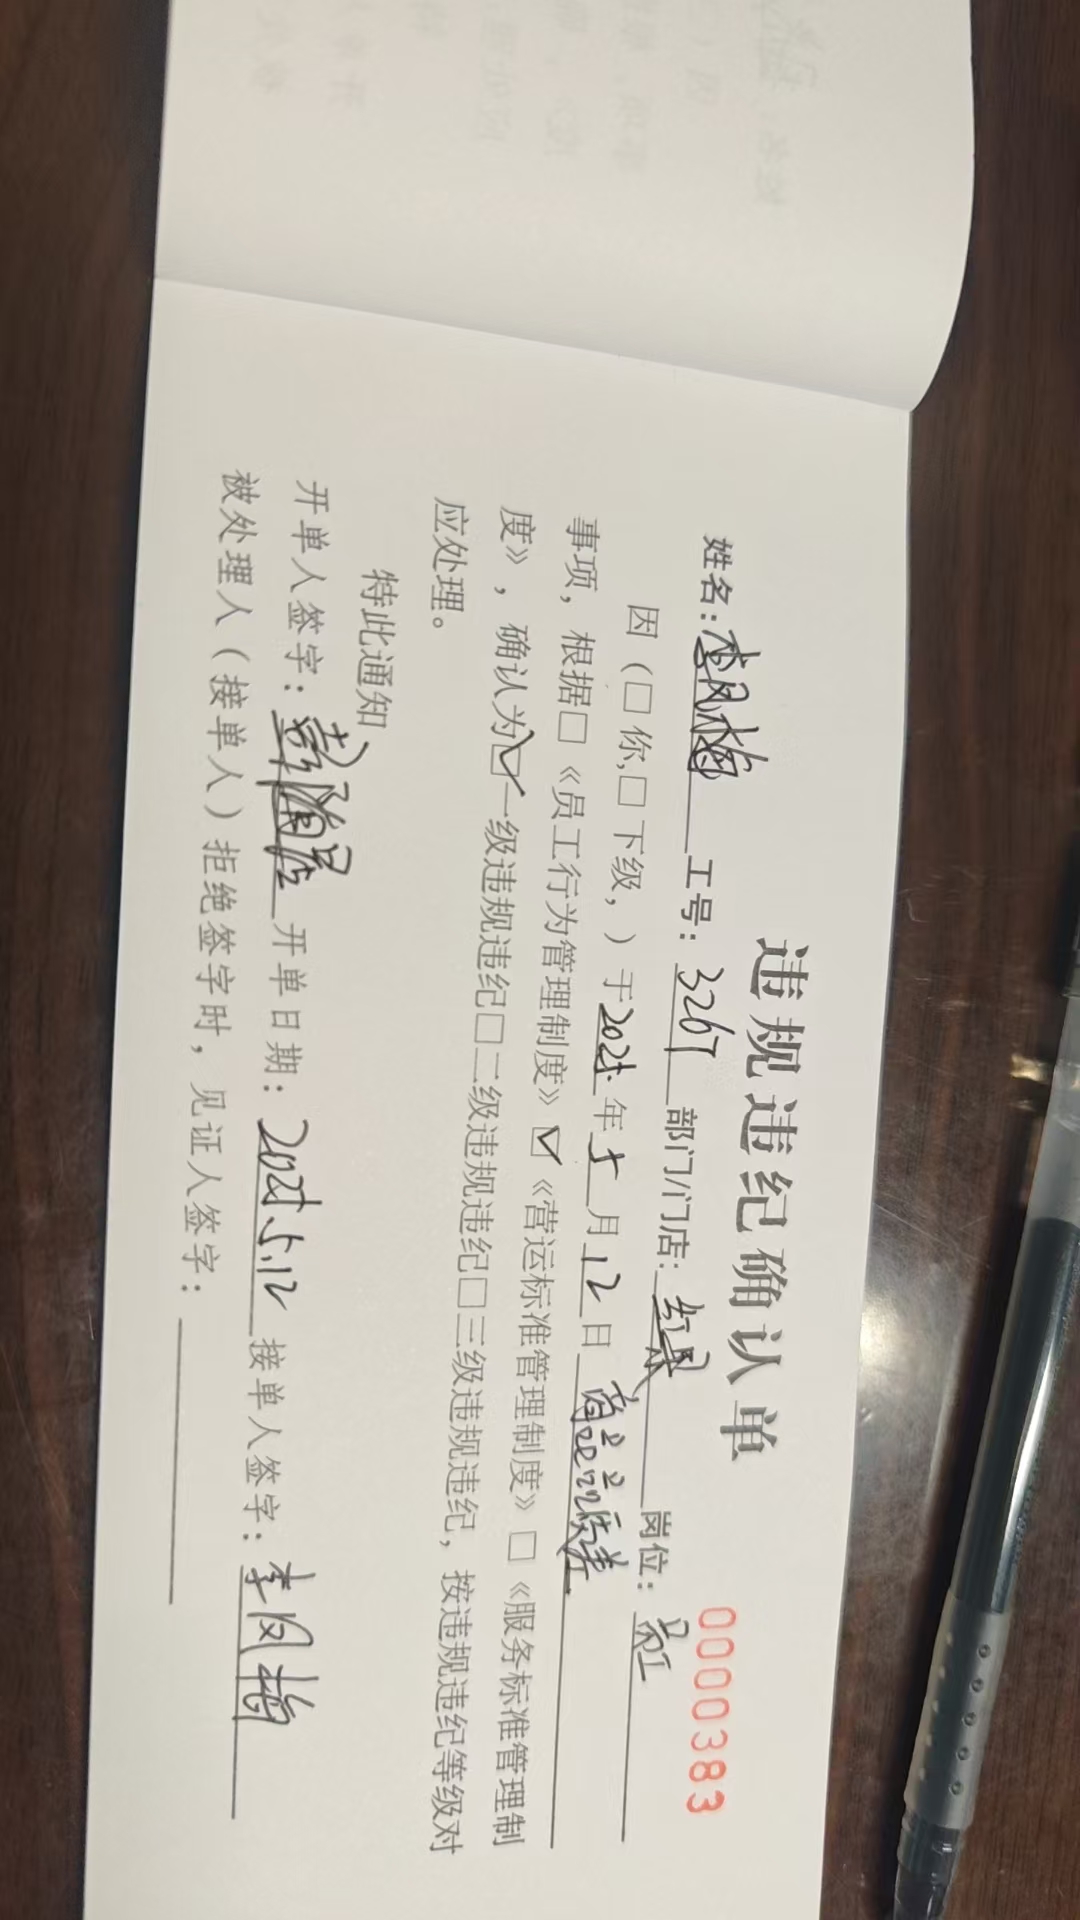 违规违纪确认单
0000383
姓名:李凤梅 工号:3267 部门/门店: 岗位:员工
因(□你,□下级,)于2025年5月12日
事项,根据□《员工行为管理制度》☑《营运标准管理制度》□《服务标准管理制
度》,确认为☑一级违规违纪□二级违规违纪□三级违规违纪,按违规违纪等级对
应处理。
特此通知
开单人签字: 开单日期:2025.5.12 接单人签字:李凤梅
被处理人(接单人)拒绝签字时,见证人签字: